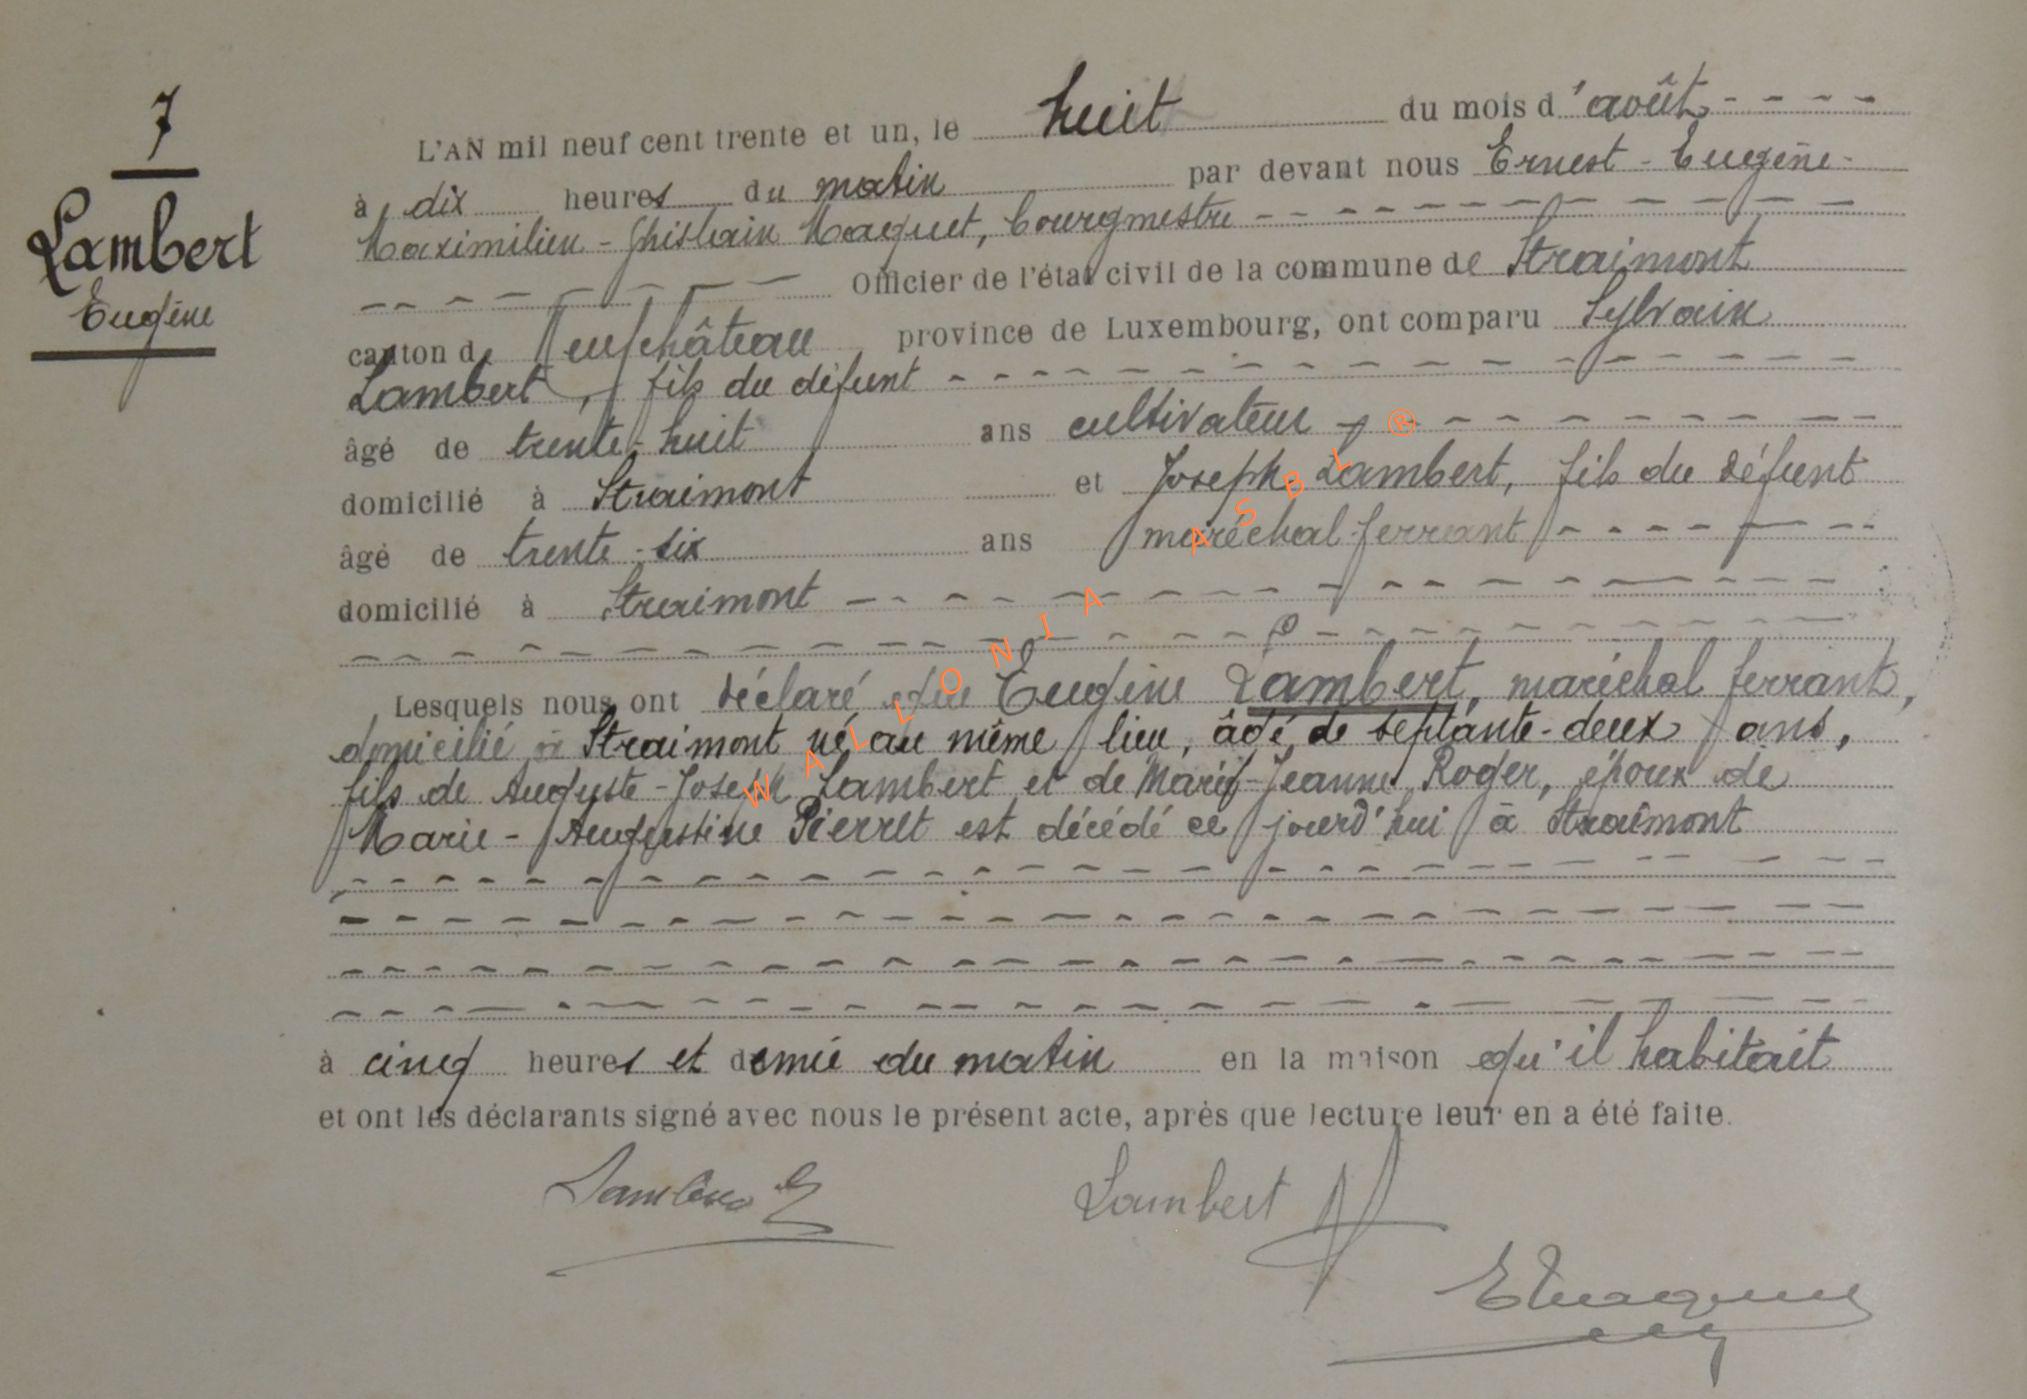 7
Lambert
Eugène
L'AN mil neuf cent trente et un, le huit du mois d'août
à dix heures du matin par devant nous Ernest-Eugène-
Maximilien-Ghislain Maquet, bourgmestre
Officier de l'état civil de la commune de Straimont
canton de Neufchâteau province de Luxembourg, ont comparu Sylvain
Lambert, fils du défunt
âgé de trente-huit ans cultivateur
domicilié à Straimont et Joseph Lambert, fils du défunt
âgé de trente-six ans maréchal-ferrant
domicilié à Straimont
Lesquels nous ont déclaré que Eugène Lambert, maréchal ferrant,
domicilié à Straimont né au même lieu, âgé de septante-deux ans,
fils de Auguste-Joseph Lambert et de Marie-Jeanne Roger, époux de
Marie-Augustine Pierret est décédé ce jourd'hui à Straimont
à cinq heures et demie du matin en la maison qu'il habitait
et ont les déclarants signé avec nous le présent acte, après que lecture leur en a été faite.
Lambert
Lambert
EMaquet
WALLONIA ASBL ®